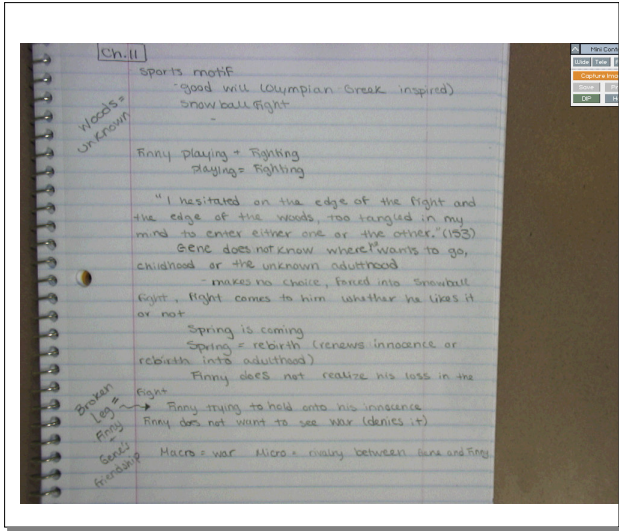 Ch. 11
sports motif
- good will (Olympian Greek inspired)
snowball fight
-
Woods =
unknown
Finny playing + Fighting
playing = Fighting
"I hesitated on the edge of the fight and
the edge of the woods, too tangled in my
mind to enter either one or the other." (153)
Gene does not know where he wants to go,
childhood or the unknown adulthood
- makes no choice, forced into snowball
fight, fight comes to him whether he likes it
or not
Spring is coming
Spring = rebirth (renews innocence or
rebirth into adulthood)
Finny does not realize his loss in the
fight
Broken
Leg =
Finny
Gene's
friendship
Finny trying to hold onto his innocence
Finny does not want to see war (denies it)
Macro = war Micro = rivalry between Gene and Finny
Mini Cont
Wide Tele
Capture Ima
Save
DIP